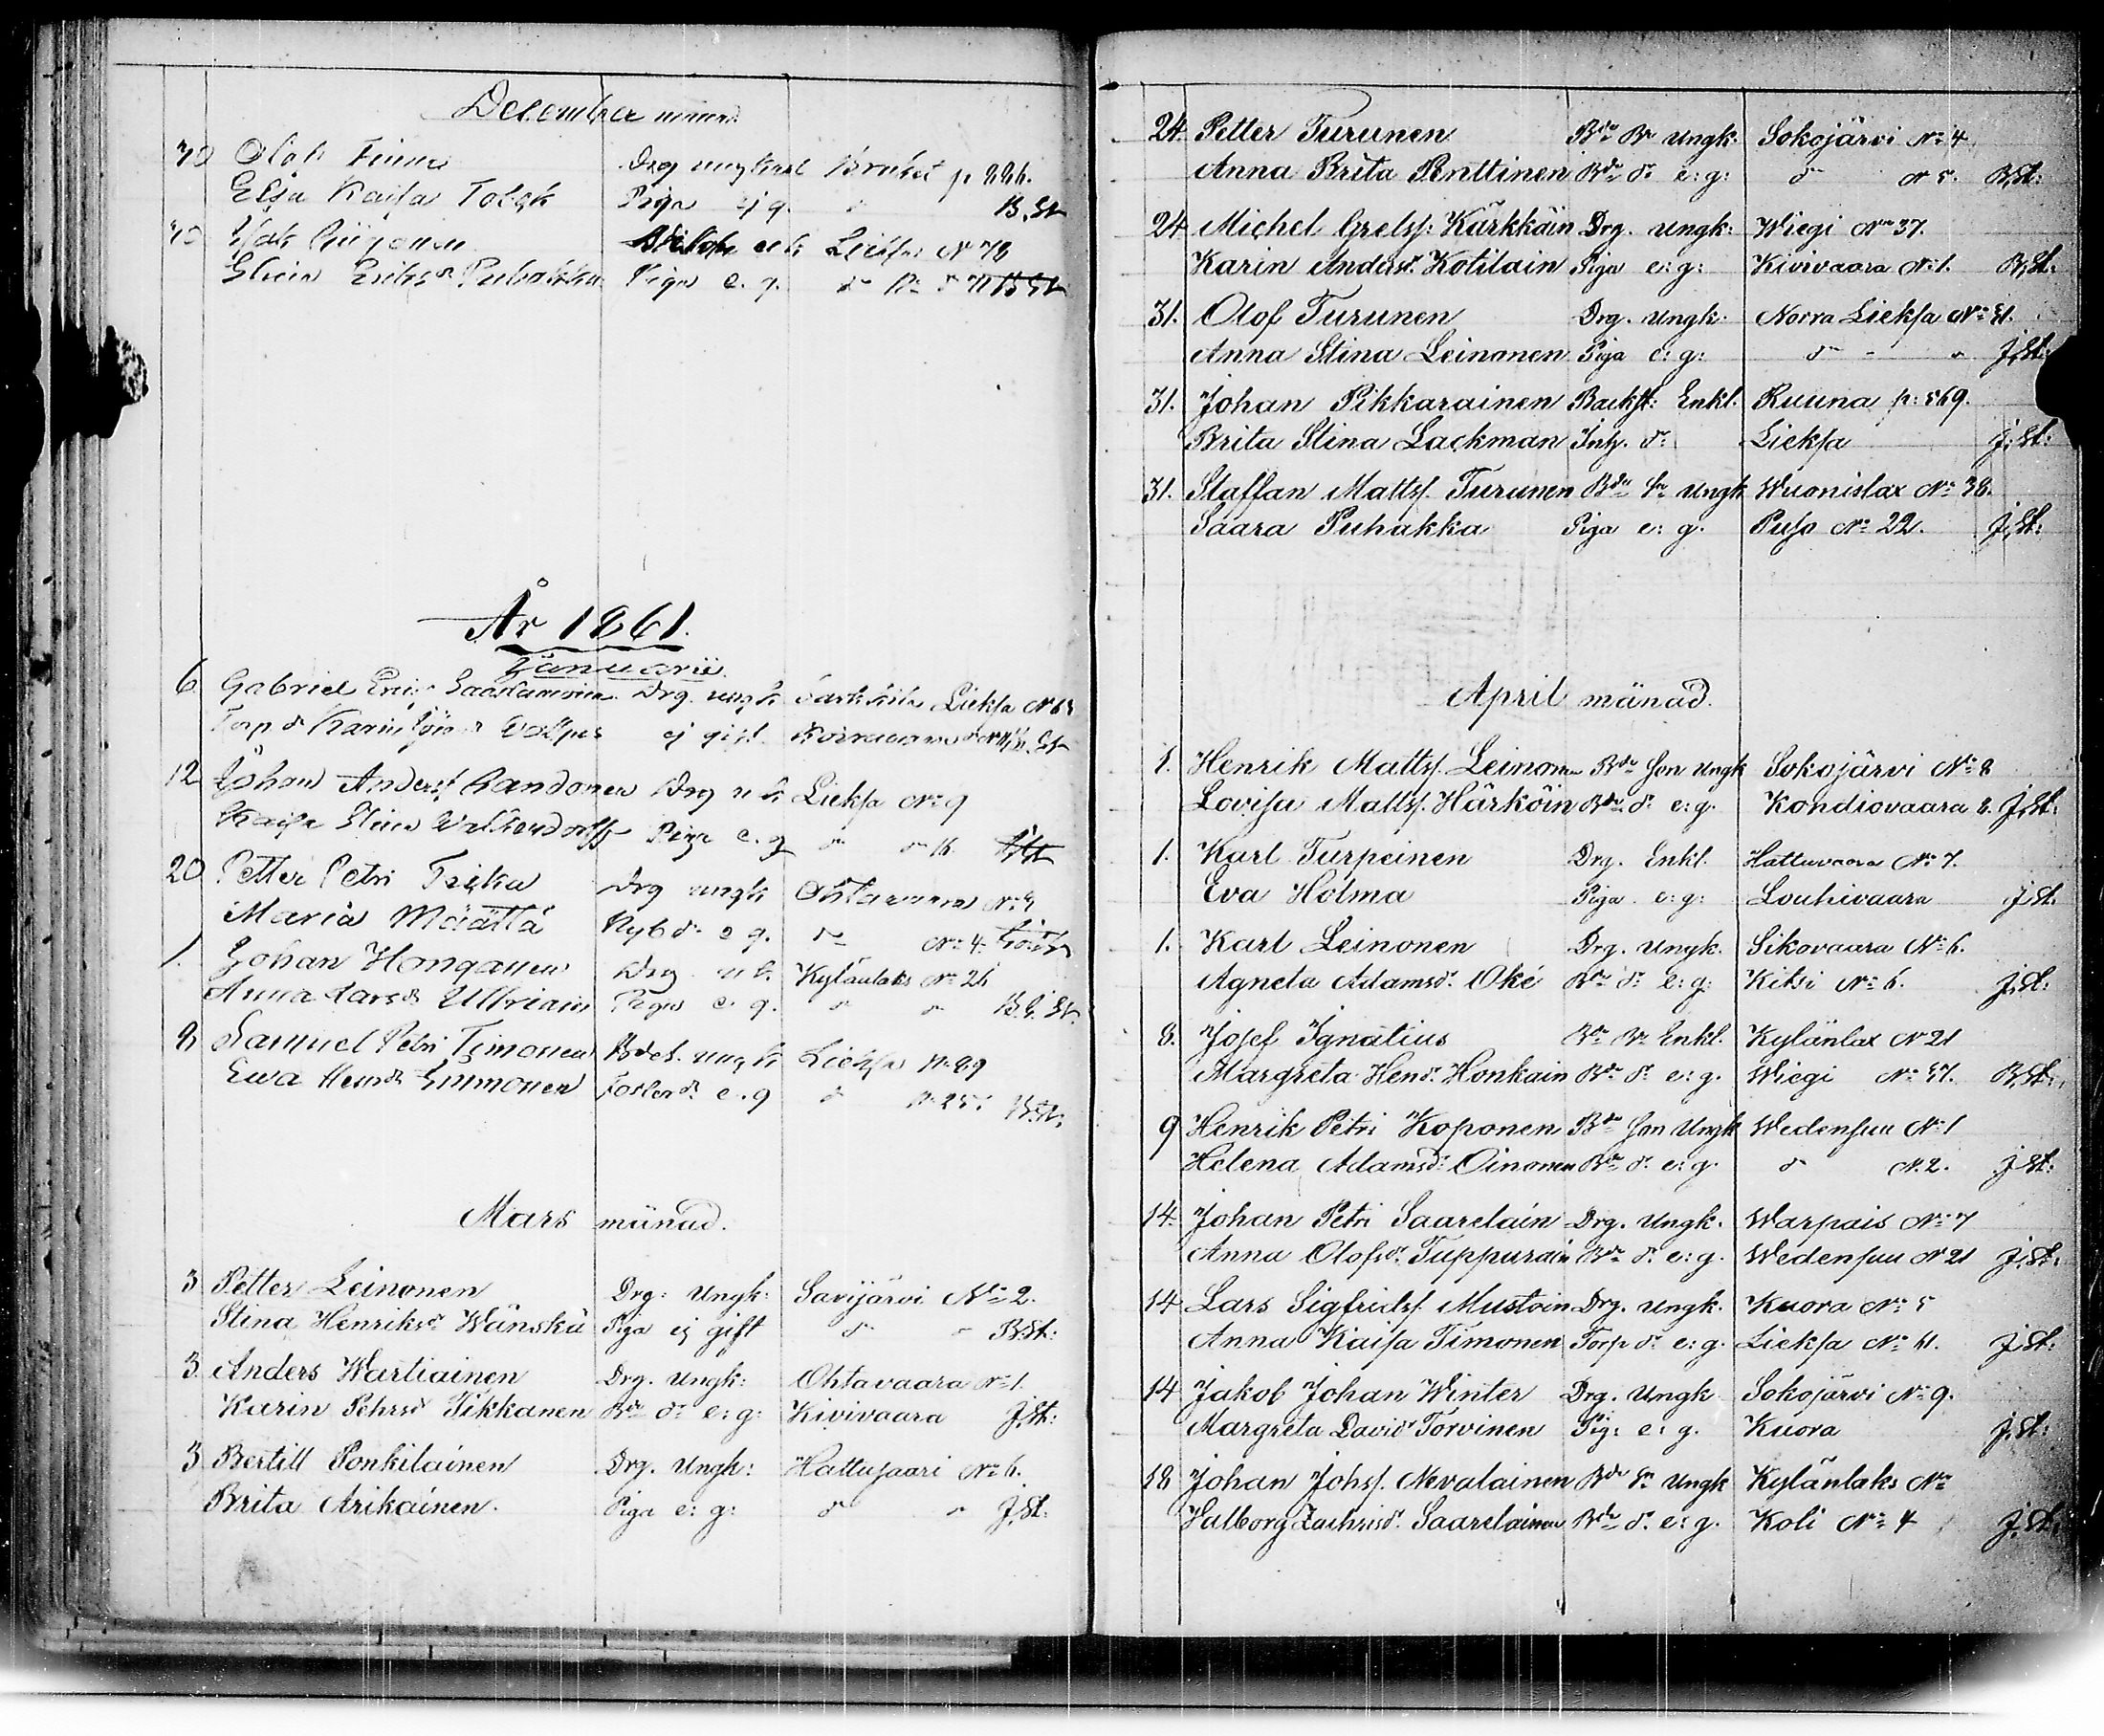 December månad
30 Olof Finne Drg ungkarl Bruket p 226.
Elsa Kaisa Tolek Piga ej g. d:o B.St
30 e. k. Lieksa N 78
Stina Eriksd:r Puhakka Piga e. g.
År 1861.
Januarii
6 Gabriel Drg. ungk Lieksa N 65
Karin ej gift
12 Johan Anders. Randonen Drg u k Lieksa N:o 9
Kaisa Stina Piga e. g d:o d:o 16
20 Petter Petri Drg ungk Ohtavaara N:o
Maria Määttä Nyb d:r e g. d:o N:o 4.
1. Johan Honganen Drg. u k. Kylänlaks N:o 26
Anna Larsd:r Ullriain Piga e. g. d:o d:o
8 Samuel Petri Timonen ungk Lieksa N:o 89
Ewa Henrd:r Immonen Foster d:r e. g d:o B.St:
Mars månad.
3 Petter Leinonen Drg: Ungk: Savijärvi N:o 2.
Stina Henriksd:r Wänskä Piga ej gift d:o d:o B.St:
3 Anders Wartiainen Drg. Ungk: Ohtavaara N:o 1.
Karin Pehrsd:r Pikkanen Bde d:r e: g: Kivivaara J.St:
3 Bertill Ponkilainen Drg. Ungk: Hattusaari N:o 6.
Brita Arikainen. Piga e: g: d:o d:o J.St:
24. Petter Turunen Bde Br Ungk: Sokojärvi N:o 4
Anna Brita Penttinen Bde d:r e: g: d:o N 5. B.St:
24 Michel Grelss: Kärkkäin Drg. Ungk: Wiegi N:o 37.
Karin Andersd:r Kotilain Piga e: g: Kivivaara N:o 1. B.St:
31. Olof Turunen Drg. Ungk: Norra Lieksa N:o 51.
Anna Stina Leinonen Piga e: g: d:o d:o J.St:
31. Johan Pikkarainen Backst: Enkl. Ruuna p: 569.
Brita Stina Lackman Inh. d:r Lieksa J.St:
31. Staffan Mattss. Turunen Bde Sn Ungk Wuonislax N:o 38.
Saara Puhakka Piga e: g. Puso N:o 22. J.St:
April månad.
1. Henrik Mattss. Leinonen Bde Son Ungk Sokojärvi N:o 8
Lovisa Mattss. Härköin Bde d:r e: g. Kondiovaara 2. J.St:
1. Karl Turpeinen Drg. Enkl. Hattuvaara N:o 7.
Eva Holma Piga e: g: Louhivaara J.St.
1. Karl Leinonen Drg. Ungk. Sikovaara N:o 6.
Agneta Adamsd:r Oké Bde d:r e: g: Kitsi N:o 6. J.St:
8. Josef Ignatius Bde Br Enkl. Kylänlax N 21
Margreta Hend:r Honkain Bde d:r e: g. Wiegi N:o 57. B.St:
9 Henrik Petri Koponen Bde Son Ungk Wedensuu N:o 1
Helena Adamsd:r Oinonen Bde d:r e: g. d:o N. 2. J.St:
14. Johan Petri Saarelain Drg. Ungk. Warpais N:o 7
Anna Olofsd:r Tuppurain Bde d:r e: g. Wedensuu N:o 21 J.St:
14 Lars Sigfridss. Mustoin Drg. Ungk. Kuora N:o 5
Anna Kaisa Timonen Torp d:r e: g. Lieksa N:o 61. J.St:
14 Jakob Johan Winter Drg. Ungk Sokojärvi N:o 9.
Margreta Davidsd:r Torvinen Pig: e: g. Kuora J.St:
18 Johan Johss. Nevalainen Bde Sn Ungk Kylänlaks N:o
Walborg Zachrisd:r Saarelainen Bde d:r e: g. Koli N:o 4 J.St: